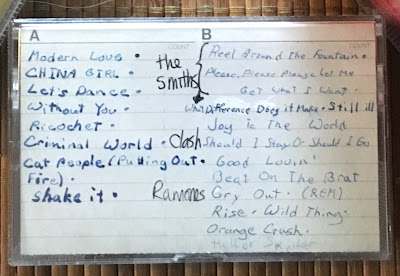 A
COUNT
Modern Love •
CHINA GIRL •
Let's Dance •
Without You •
Ricochet •
Criminal World •
Cat People (Putting Out
Fire) •
shake it •
the
Smiths
Clash
Ramones
B
COUNT
Reel Around the Fountain •
Please, Please Please Let Me
Get What I Want •
What Difference Does it Make • Still ill
Joy To The World
Should I Stay Or Should I Go
Good Lovin'
Beat On The Brat
Cry Out • (REM)
Rise • Wild Thing •
Orange Crush •
Helter Skelter